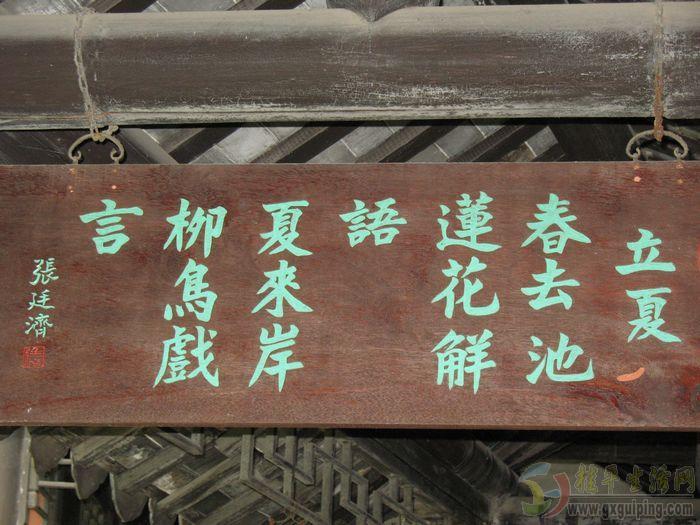 立夏
春去池
蓮花解
語
夏來岸
柳鳥戲
言
張廷濟
桂平生活网
www.gxguiping.com